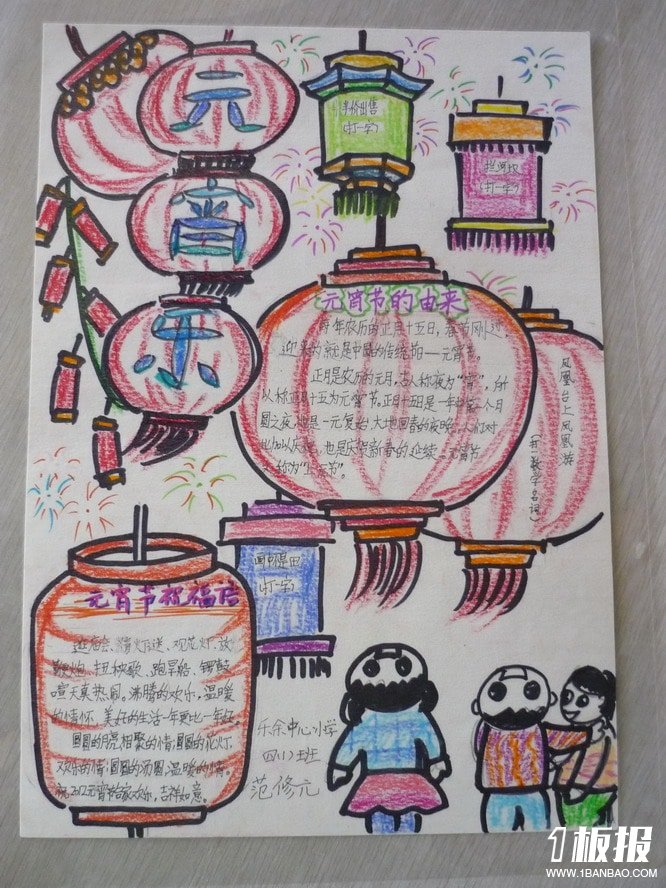 元
宵
乐
半价出售
(打一字)
拦河坝
(打一字)
元宵节的由来
每年农历的正月十五日,春节刚过,
迎来的就是中国的传统节——元宵节。
正月是农历的元月,古人称夜为“宵”,所
以称正月十五为元宵节。正月十五日是一年中第一个月
圆之夜,也是一元复始,大地回春的夜晚,人们对
此加以庆祝,也是庆贺新春的延续。元宵节
又称为“上元节”。
凤凰台上凤凰游
(打一数学名词)
画中是田
(打一字)
元宵节祝福语
逛庙会、猜灯谜、观花灯、放
鞭炮、扭秧歌、跑旱船、锣鼓
喧天真热闹。沸腾的欢乐,温暖
的情怀,美好的生活一年更比一年好。
圆圆的月亮相聚的情,圆圆的花灯
欢乐的情,圆圆的汤圆温暖的情。
祝2012元宵节合家欢乐,吉祥如意。
乐余中心小学
四(1)班
范修元
1板报
WWW.1BANBAO.COM